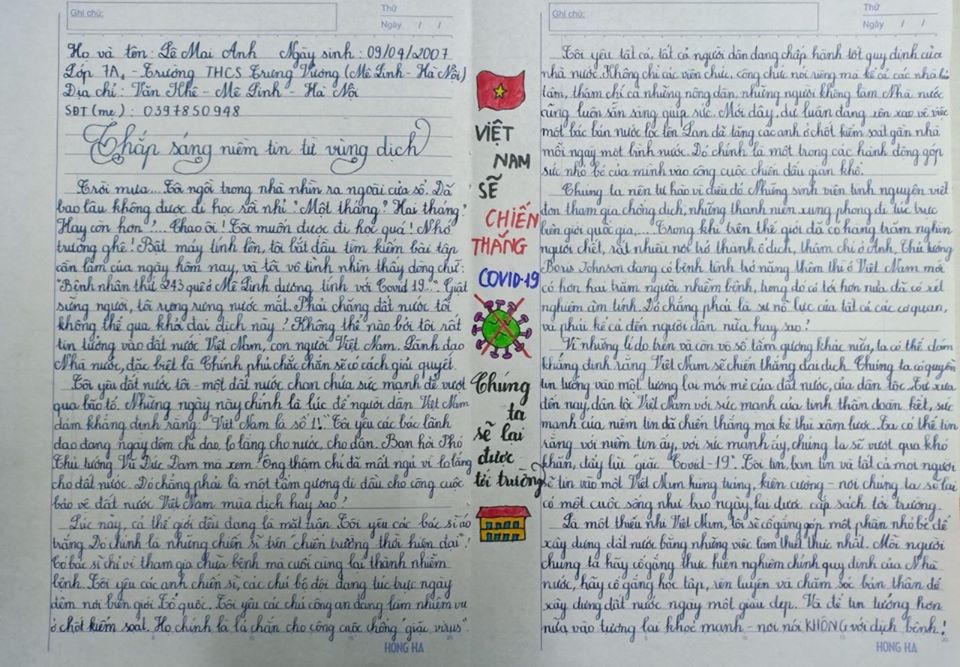 Ghi chú:
Thứ
Ngày / /
Họ và tên: Lê Mai Anh Ngày sinh: 09/04/2007
Lớp 7A1 - Trường THCS Trưng Vương (Mê Linh - Hà Nội)
Địa chỉ: Văn Khê - Mê Linh - Hà Nội
SĐT (mẹ): 0397850948
Thắp sáng niềm tin từ vùng dịch
Trời mưa... Tôi ngồi trong nhà nhìn ra ngoài cửa sổ. Đã
bao lâu không được đi học rồi nhỉ? Một tháng? Hai tháng?
Hay còn hơn?... Chao ôi! Tôi muốn được đi học quá! Nhớ
trường ghê! Bật máy tính lên, tôi bắt đầu tìm kiếm bài tập
cần làm của ngày hôm nay, và tôi vô tình nhìn thấy dòng chữ:
"Bệnh nhân thứ 243 quê ở Mê Linh dương tính với Covid 19". Giật
sững người, tôi rưng rưng nước mắt. Phải chăng đất nước tôi
không thể qua khỏi đại dịch này? Không thể nào bởi tôi rất
tin tưởng vào đất nước Việt Nam, con người Việt Nam. Lãnh đạo
Nhà nước, đặc biệt là Chính phủ chắc chắn sẽ có cách giải quyết.
Tôi yêu đất nước tôi - một đất nước chan chứa sức mạnh để vượt
qua bão tố. Những ngày này chính là lúc để người dân Việt Nam
dám khẳng định rằng: "Việt Nam là số 1!". Tôi yêu các bác lãnh
đạo đang ngày đêm chỉ đạo, lo lắng cho nước, cho dân. Bạn hãy Phó
Thủ tướng Vũ Đức Đam mà xem. Ông thậm chí đã mất ngủ vì lo lắng
cho đất nước. Đó chẳng phải là một tấm gương đi đầu cho công cuộc
bảo vệ đất nước Việt Nam mùa dịch hay sao?
Lúc này, cả thế giới đều đang là mặt trận. Tôi yêu các bác sĩ áo
trắng. Đó chính là những chiến sĩ trên "chiến trường thời hiện đại".
Có bác sĩ chỉ vì tham gia chữa bệnh mà cuối cùng lại thành nhiễm
bệnh. Tôi yêu các anh chiến sĩ, các chú bộ đội đang túc trực ngày
đêm nơi biên giới Tổ quốc. Tôi yêu các chú công an đang làm nhiệm vụ
ở chốt kiểm soát. Họ chính là lá chắn cho công cuộc chống "giặc virus"
HONG HA
VIỆT
NAM
SẼ
CHIẾN
THẮNG
COVID-19
Chúng
ta
sẽ lại
được
tới trường
Ghi chú:
Thứ
Ngày / /
Tôi yêu tất cả, tất cả người dân đang chấp hành tốt quy định của
nhà nước. Không chỉ các viên chức, công chức nói riêng mà kể cả các nhà hảo
tâm, thậm chí cả những nông dân, những người không làm Nhà nước
cũng luôn sẵn sàng giúp sức. Mới đây, dư luận đang xôn xao về việc
một bác bán nước lọc tên Lan đã tặng các anh ở chốt kiểm soát gần nhà
mỗi ngày một bình nước. Đó chính là một trong các hành động góp
sức nhỏ bé của mình vào công cuộc chiến đấu gian khổ.
Chúng ta nên tự hào vì điều đó. Những sinh viên tình nguyện viết
đơn tham gia chống dịch, những thanh niên xung phong đi túc trực
biên giới quốc gia,.... Trong khi trên thế giới đã có hàng trăm nghìn
người chết, rất nhiều nơi trở thành ổ dịch, thậm chí ở Anh, Thủ tướng
Boris Johnson đang có bệnh tình trở nặng thêm thì ở Việt Nam mới
có hơn hai trăm người nhiễm bệnh, trong đó có tới hơn nửa đã có xét
nghiệm âm tính. Đó chẳng phải là sự nỗ lực của tất cả các cơ quan,
và phải kể cả đến người dân nữa hay sao?
Vì những lí do trên và còn vô số tấm gương khác nữa, ta có thể dám
khẳng định rằng Việt Nam sẽ chiến thắng đại dịch. Chúng ta có quyền
tin tưởng vào một tương lai mới mẻ của đất nước, của dân tộc. Từ xưa
đến nay, dân tộc Việt Nam với sức mạnh của tinh thần đoàn kết, sức
mạnh của niềm tin đã chiến thắng mọi kẻ thù xâm lược. Ta có thể tin
rằng với niềm tin ấy, với sức mạnh ấy, chúng ta sẽ vượt qua khó
khăn, đẩy lùi "giặc Covid-19". Tôi tin, bạn tin và tất cả mọi người
sẽ tin vào một Việt Nam hùng tráng, kiên cường - nơi chúng ta sẽ lại
có một cuộc sống như bao ngày, lại được cắp sách tới trường.
Là một thiếu nhi Việt Nam, tôi sẽ cố gắng góp một phần nhỏ bé để
xây dựng đất nước bằng những việc làm thiết thực nhất. Mỗi người
chúng ta hãy cố gắng thực hiện nghiêm chỉnh quy định của Nhà
nước, hãy cố gắng học tập, rèn luyện và chăm sóc bản thân để
xây dựng đất nước ngày một giàu đẹp. Và để tin tưởng hơn
nữa vào tương lai khoẻ mạnh - nơi nói KHÔNG với dịch bệnh!
HONG HA